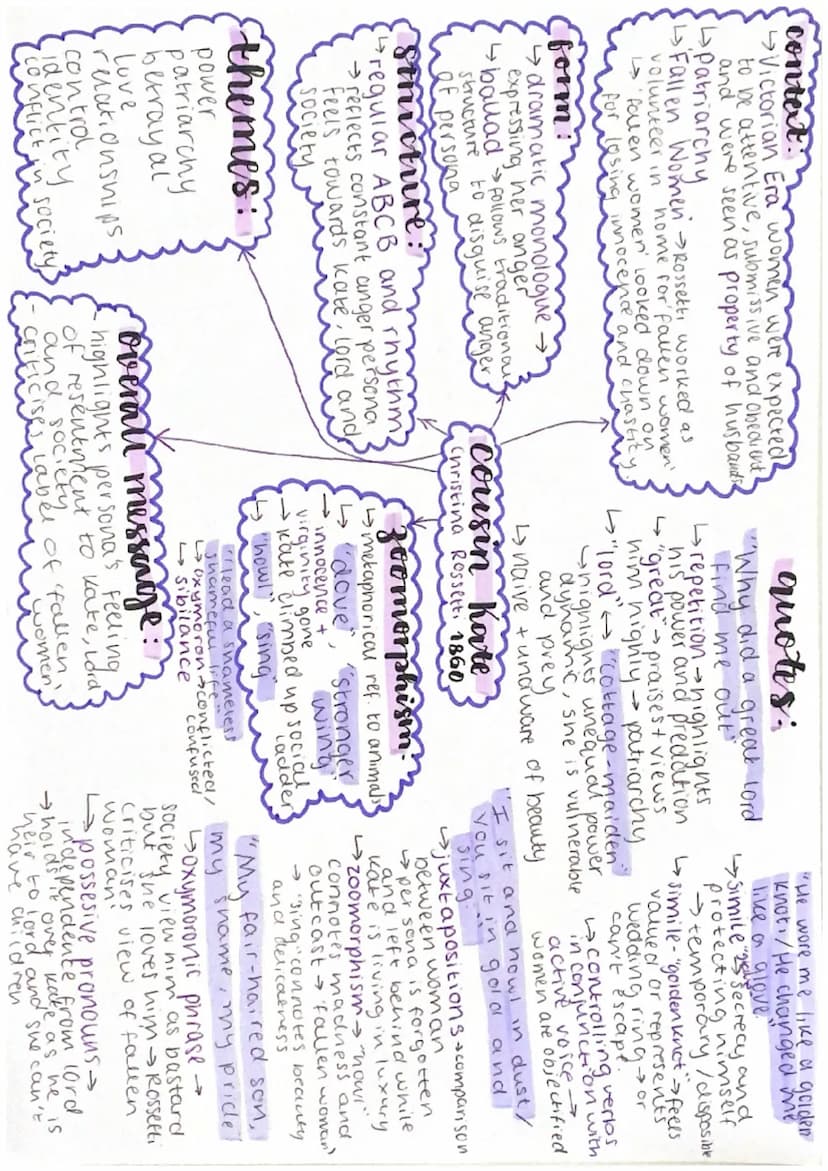 cousin Kate
Christina Rossetti 1860
context:
↳ Victorian Era women were expected
to be attentive, submissive and obedient
and were seen as property of husbands
↳ patriarchy
↳ 'Fallen Women' → Rossetti worked as
volunteer in 'home for fallen women'
↳ 'fallen women' looked down on
for losing innocence and chastity
form:
↳ dramatic monologue →
expressing her anger
↳ ballad → follows traditional
structure to disguise anger
of persona
structure:
↳ regular ABCB and rhythm
→ reflects constant anger persona
feels towards Kate, lord and
society
themes:
power
patriarchy
betrayal
love
relationships
control
identity
conflict in society
overall message:
- highlights persona's feeling
of resentment to Kate, Lord
and society
- criticises label of 'fallen
women'
zoomorphism:
↳ metaphorical ref. to animals
↳ "dove", "stronger
wing"
→ innocence +
virginity gone
→ Kate climbed up social
ladder
↳ "howl", "sing"
"lead a shameless
shameful life"
↳ oxymoron → conflicted/
confused
↳ sibilance
quotes:
"Why did a great lord
find me out"
↳ repetition → highlights
his power and predation
↳ "great" → praises + views
him highly → patriarchy
↳ "lord" ↔ "cottage-maiden"
↳ highlights unequal power
dynamic, she is vulnerable
and prey
↳ naive + unaware of beauty
"He wore me like a golden
knot, / He changed me
like a glove"
↳ simile → secrecy and
protecting himself
→ temporary / disposible
↳ simile - "golden knot" → feels
valued or represents
wedding ring → or
can't escape
↳ controlling verbs
in conjunction with
active voice →
women are objectified
"I sit and howl in dust/
You sit in gold and
sing:"
↳ juxtapositions → comparison
between woman
↳ persona is forgotten
and left behind while
Kate is living in luxury
↳ zoomorphism → "howl"
connotes madness and
outcast → 'fallen woman'
→ 'sing' connotes beauty
and
"My fair-haired son,
my shame, my pride"
↳ oxymoronic phrase →
society view him as bastard
but she loves him → Rossetti
criticises view of 'fallen
woman'
↳ possesive pronouns →
independente from lord
→ holds it over Kate as he is
heir to lord and she can't
have children